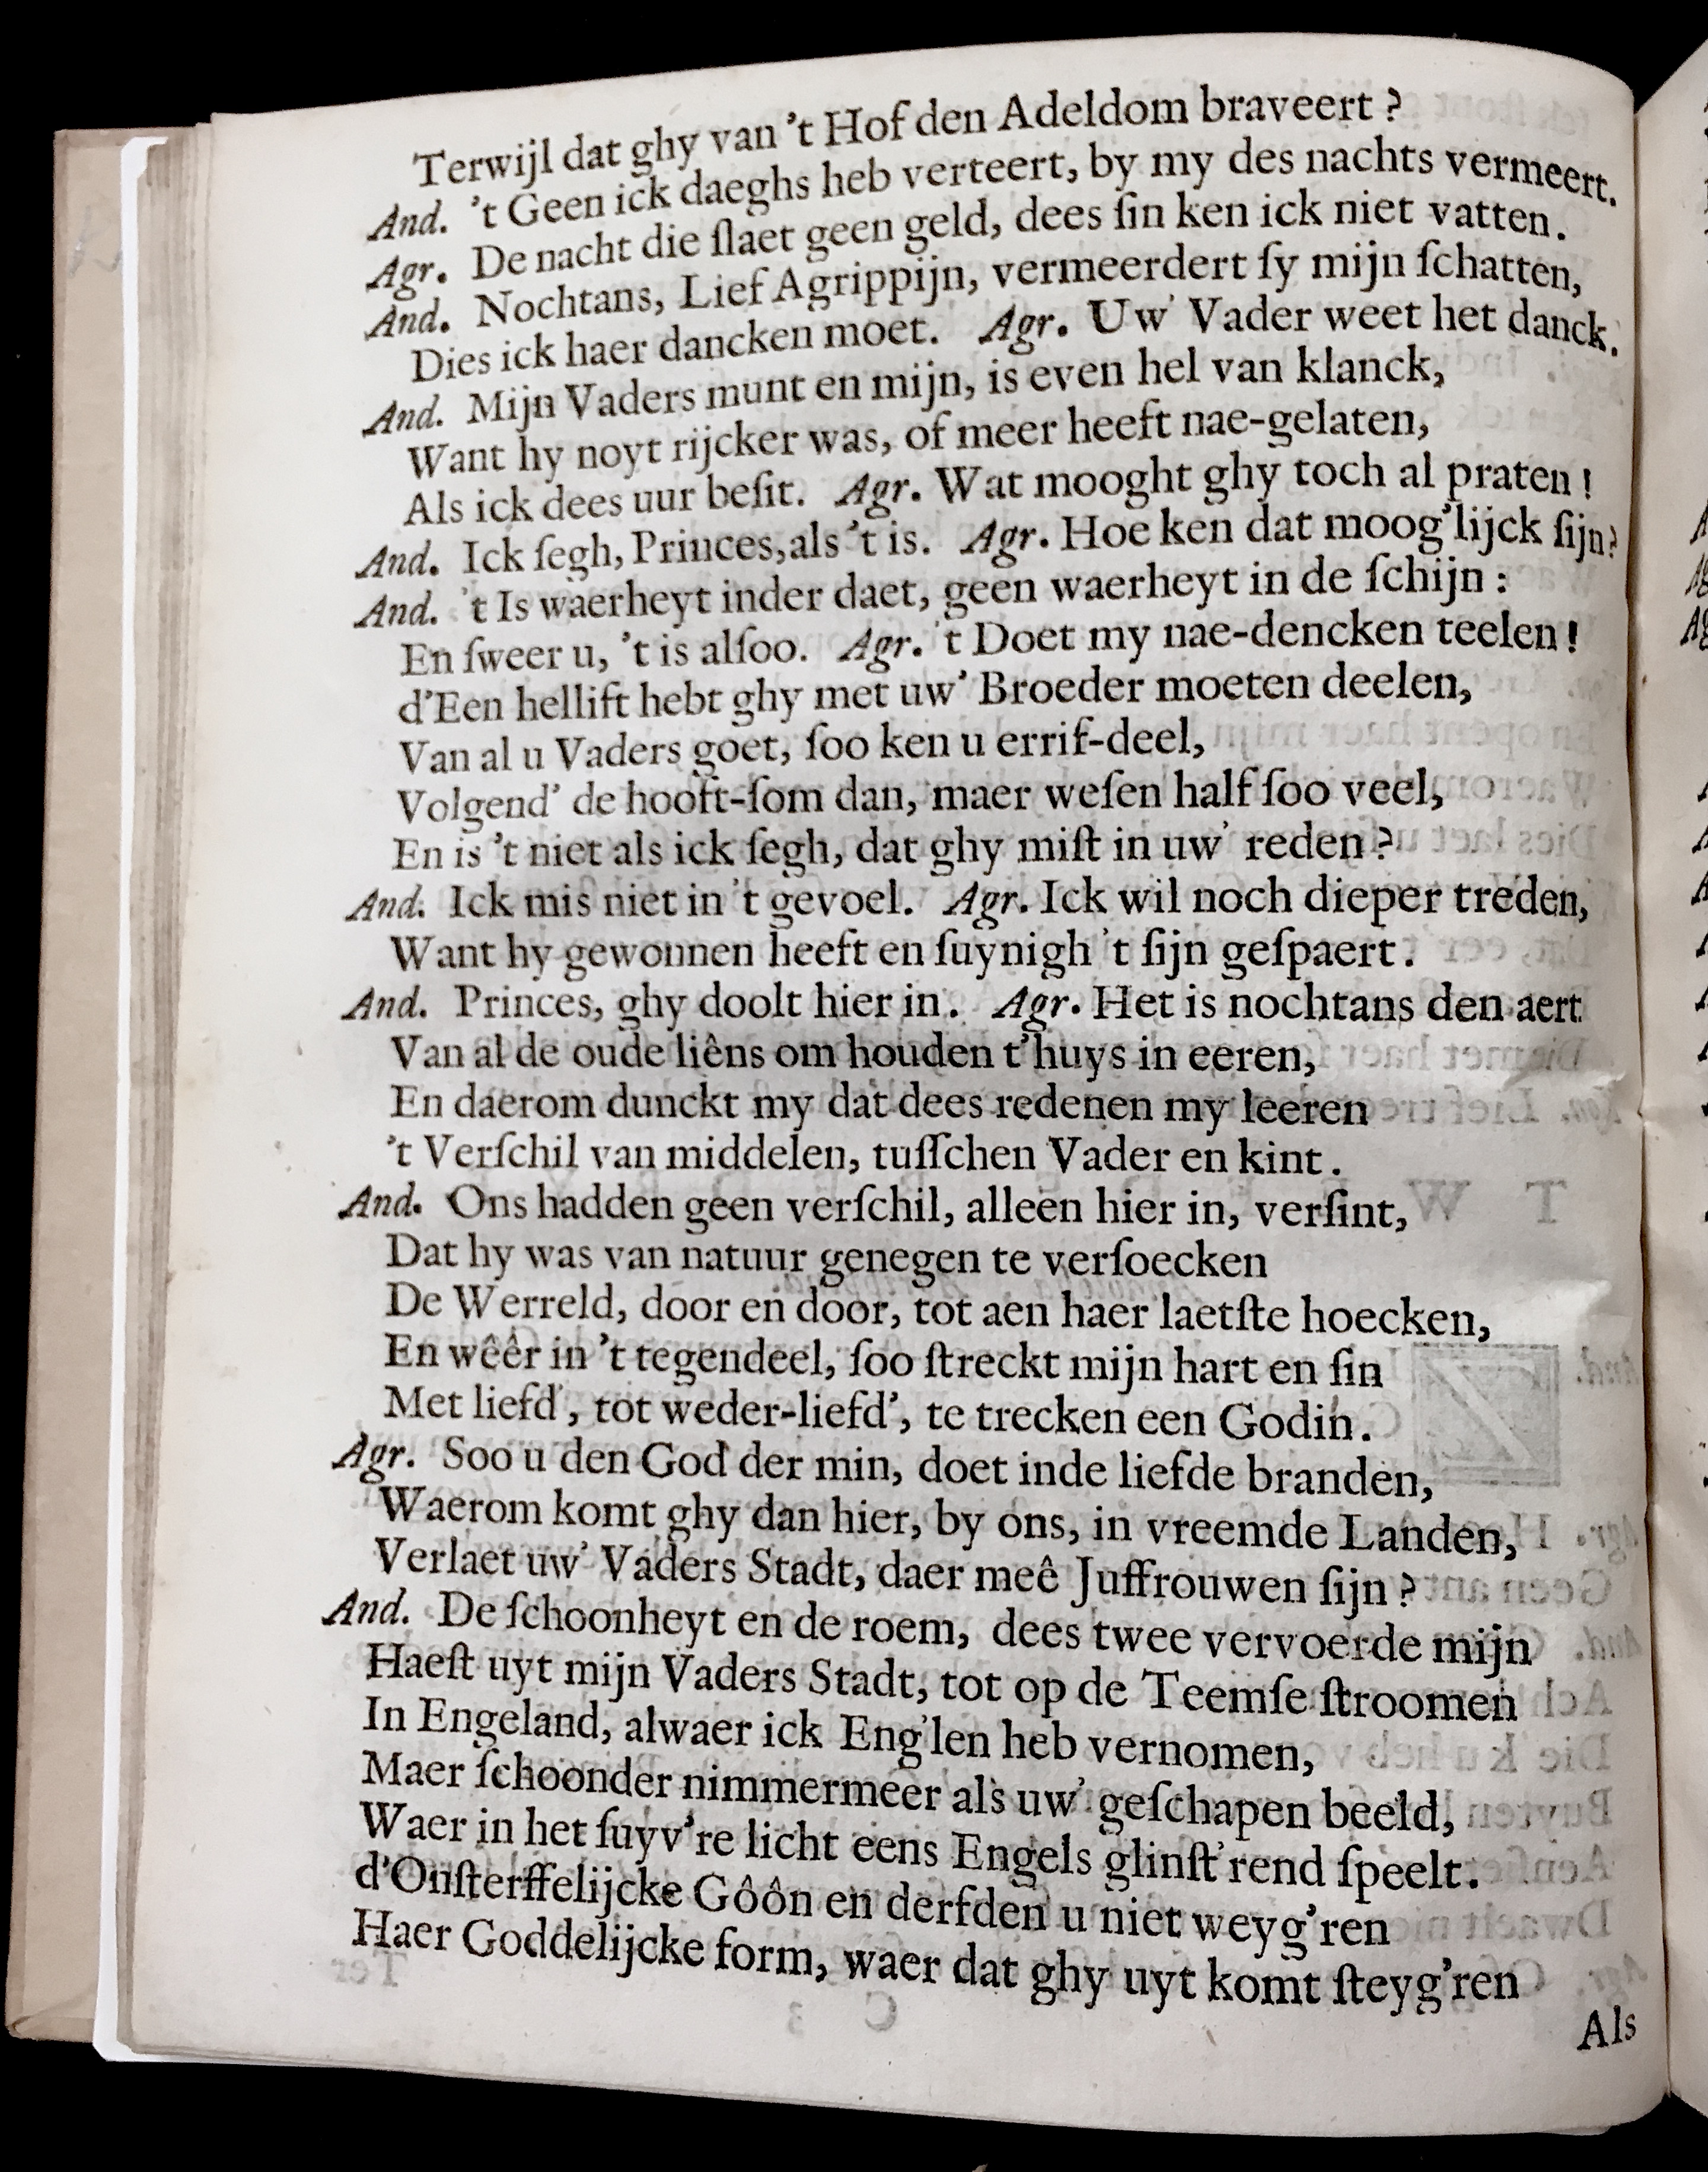 Terwijl dat ghy van 't Hof den Adeldom braveert ?
And. 't Geen ick daeghs heb verteert, by my des nachts vermeert.
Agr. De nacht die ſlaet geen geld, dees ſin ken ick niet vatten.
And. Nochtans, Lief Agrippijn, vermeerdert ſy mijn ſchatten,
Dies ick haer dancken moet. Agr. Uw' Vader weet het danck.
And. Mijn Vaders munt en mijn, is even hel van klanck,
Want hy noyt rijcker was, of meer heeft nae-gelaten,
Als ick dees uur beſit. Agr. Wat mooght ghy toch al praten !
And. Ick ſegh, Princes, als 't is. Agr. Hoe ken dat moog'lijck ſijn?
And. 't Is waerheyt inder daet, geen waerheyt in de ſchijn :
En ſweer u, 't is alſoo. Agr. 't Doet my nae-dencken teelen !
d'Een hellift hebt ghy met uw' Broeder moeten deelen,
Van al u Vaders goet, ſoo ken u errif-deel,
Volgend' de hooft-ſom dan, maer weſen half ſoo veel,
En is 't niet als ick ſegh, dat ghy miſt in uw' reden ?
And. Ick mis niet in 't gevoel. Agr. Ick wil noch dieper treden,
Want hy gewonnen heeft en ſuynigh 't ſijn geſpaert.
And. Princes, ghy doolt hier in. Agr. Het is nochtans den aert
Van al de oude liêns om houden t'huys in eeren,
En daerom dunckt my dat dees redenen my leeren
't Verſchil van middelen, tuſſchen Vader en kint.
And. Ons hadden geen verſchil, alleen hier in, verſint,
Dat hy was van natuur genegen te verſoecken
De Werreld, door en door, tot aen haer laetſte hoecken,
En wêêr in 't tegendeel, ſoo ſtreckt mijn hart en ſin
Met liefd', tot weder-liefd', te trecken een Godin.
Agr. Soo u den God der min, doet inde liefde branden,
Waerom komt ghy dan hier, by ons, in vreemde Landen,
Verlaet uw' Vaders Stadt, daer meê Juffrouwen ſijn ?
And. De ſchoonheyt en de roem, dees twee vervoerde mijn
Haeſt uyt mijn Vaders Stadt, tot op de Teemſe ſtroomen
In Engeland, alwaer ick Eng'len heb vernomen,
Maer ſchoonder nimmermeer als uw' geſchapen beeld,
Waer in het ſuyv're licht eens Engels glinſt'rend ſpeelt.
d'Onſterffelijcke Gôôn en derfden u niet weyg'ren
Haer Goddelijcke form, waer dat ghy uyt komt ſteyg'ren
Als